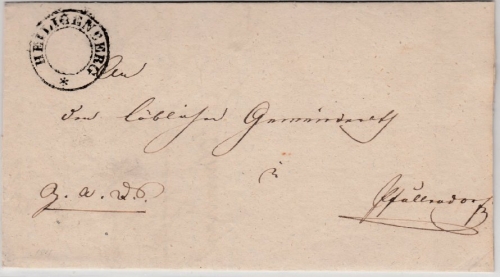 HEILIGENBERG *
An
den löblichen Gemeinderath
in
g. a. d. S.
Pfullendorf